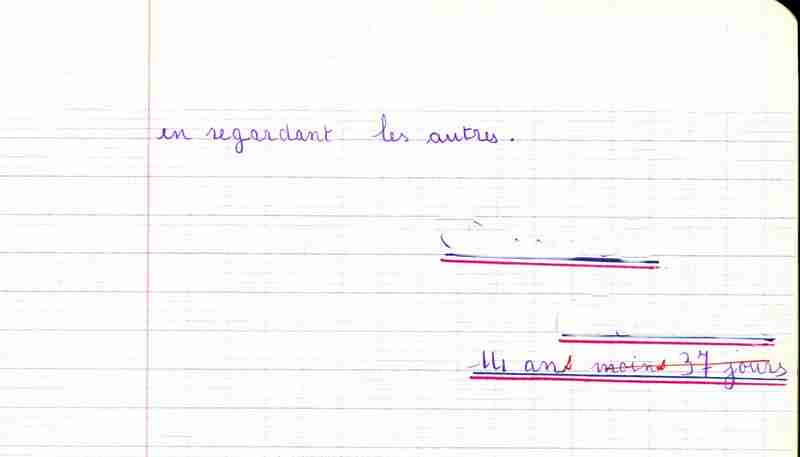 en regardant les autres.
11 ans moins 37 jours